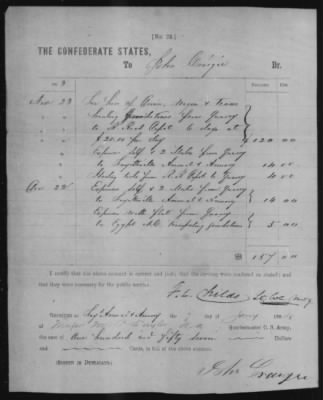 [No. 22.]
THE CONFEDERATE STATES,
To John Craige Dr.
Dollars Cts
Nov 23 For hire of Team, Wagon & Teams
hauling from Quarry
to R Road Depot 6 days at
$20.00 per day $120 00
Expenses self & 2 Mules from Quarry
to Fayetteville Arsenal & Armory 14 00
from R R Depot to Quarry 4 00
Dec 22 Expenses self & 2 Mules from Quarry
to Fayetteville Arsenal & Armory 14 00
Expenses with from Quarry
to Egypt N.C. 5 00
157 00
I certify that the above account is correct and just; that the services were rendered as stated; and that they were necessary for the public service.
F. L. Childs Lt Col
Received at Fay Arsnl & Armory the of Jany 186
of Major Quartermaster C. S. Army,
the sum of One hundred and fifty seven Dollars
and Cents, in full of the above account.
(Signed in Duplicate.)
John Craige